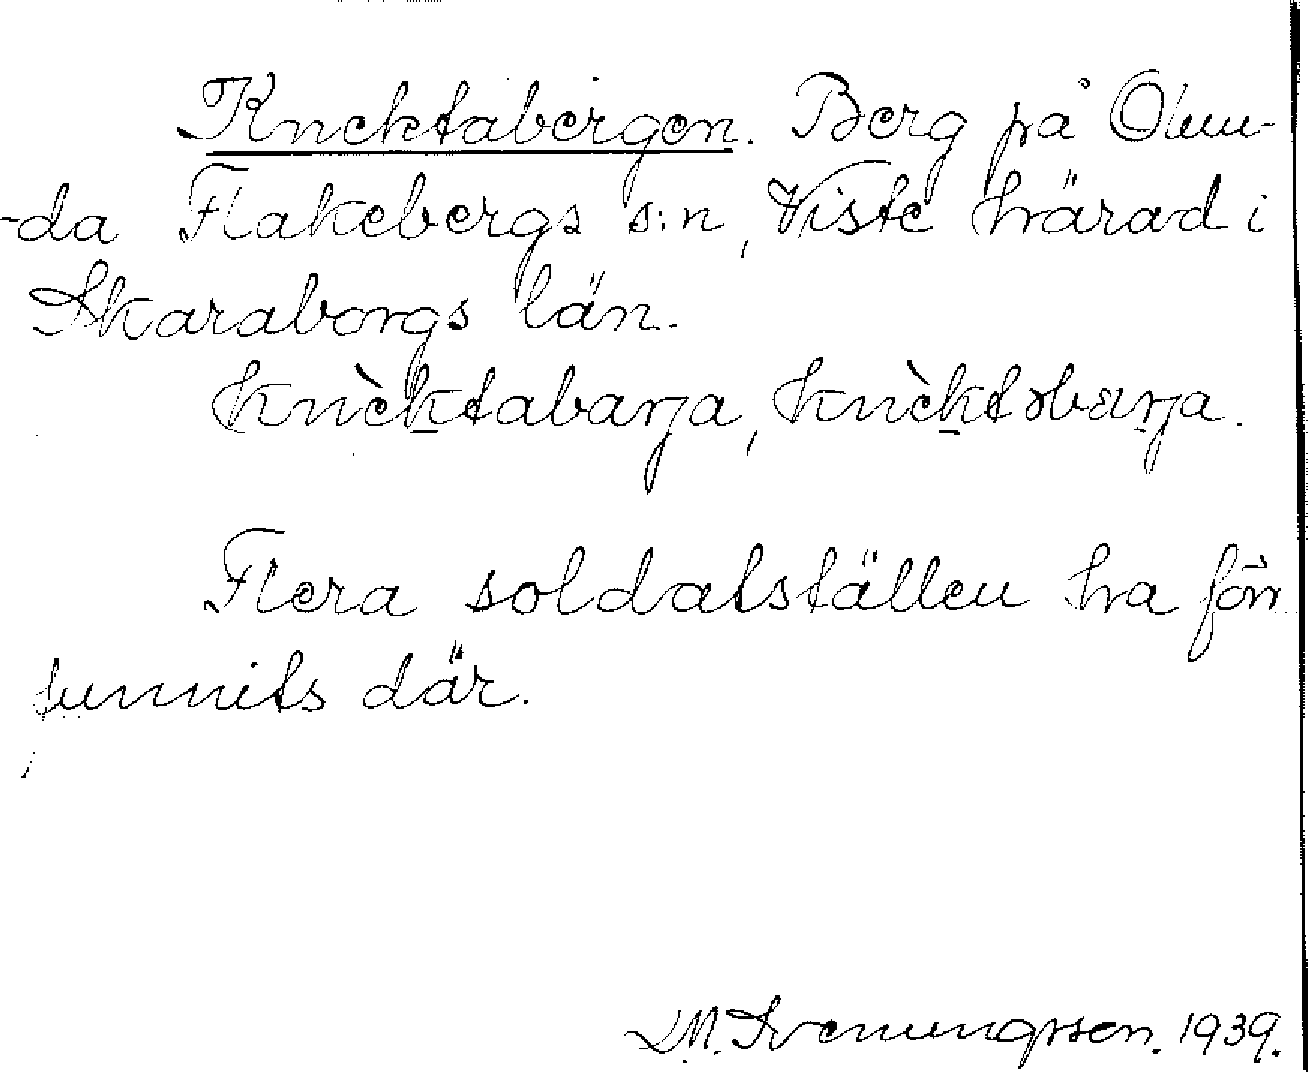 Knektabergen. Berg på Öun-
-da Flakebergs s:n, Viste härad i
Skaraborgs län.
knèktabarja, knèktɔbarja.
Flera soldatställen ha förr
funnits där.
Svenungsson. 1939.